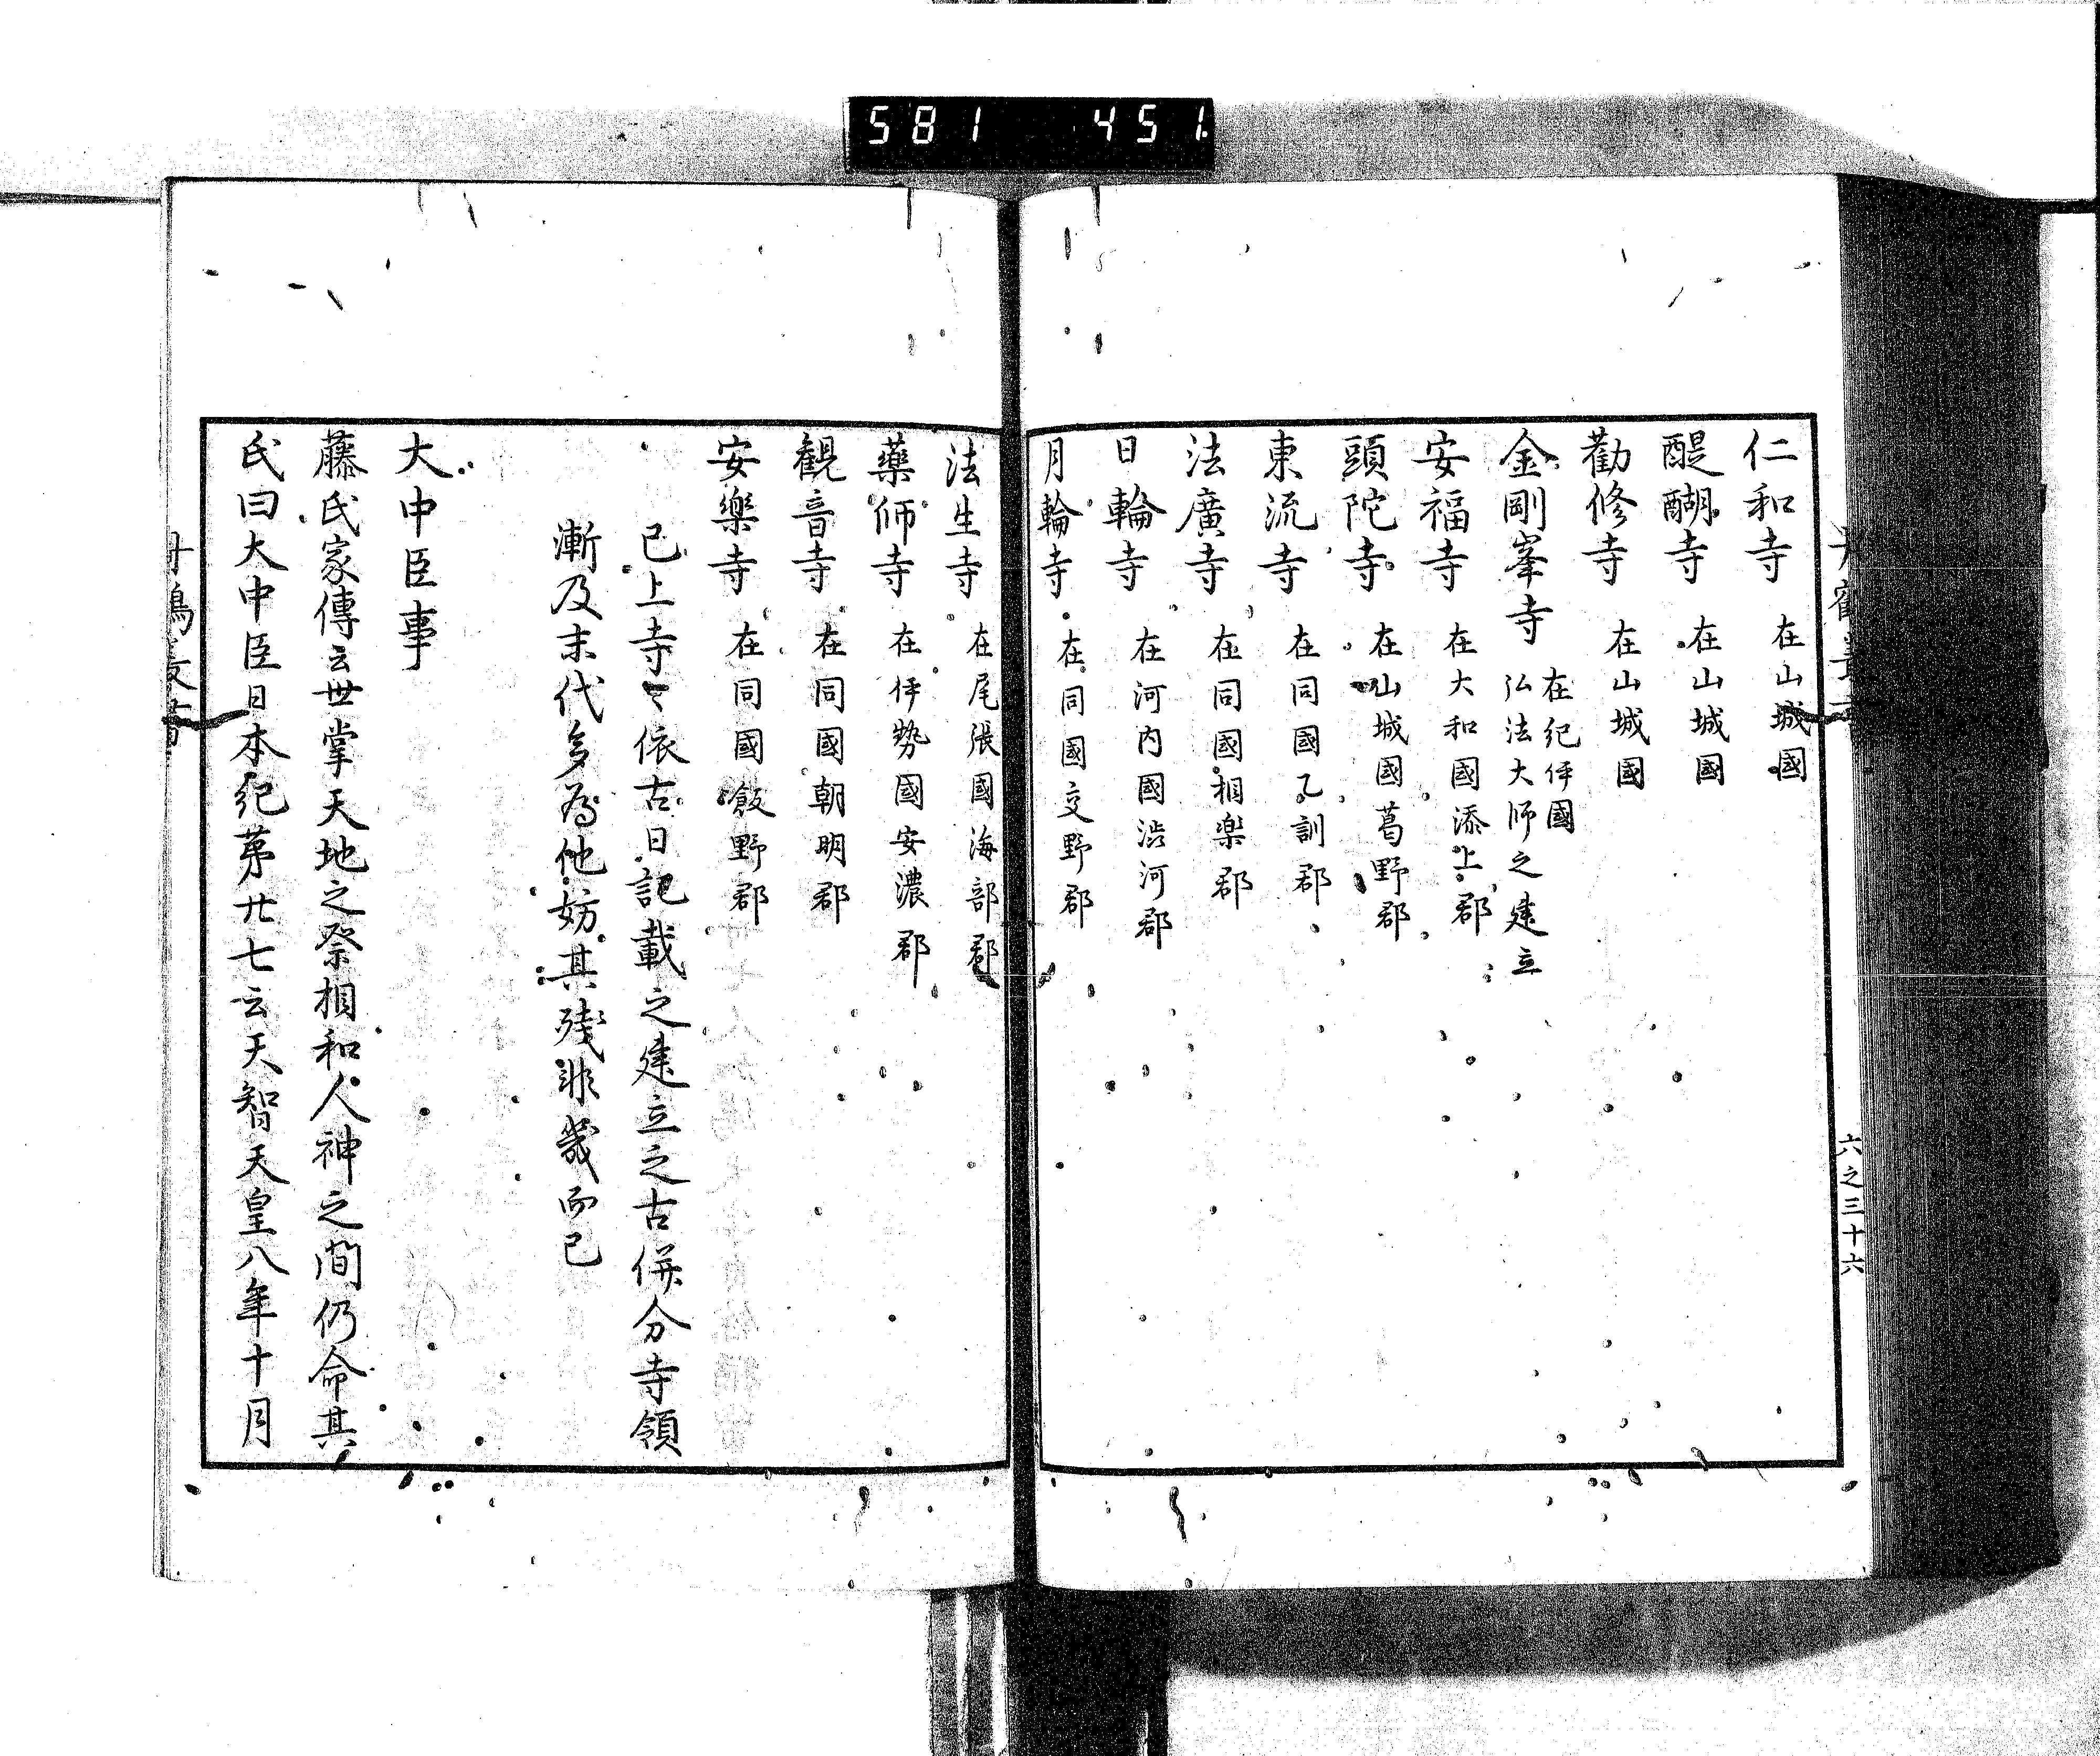 581 451
仁和寺 在山城國
醍醐寺 在山城國
勸修寺 在山城國
金剛峯寺 在紀伊國
弘法大師之建立
安福寺 在大和國添上郡
頭陀寺 在山城國葛野郡
東流寺 在同國乙訓郡
法廣寺 在同國相楽郡
日輪寺 在河内國渋河郡
月輪寺 在同國交野郡
六之三十六
法生寺 在尾張國海部郡
藥師寺 在伊勢國安濃郡
觀音寺 在同國朝明郡
安樂寺 在同國飯野郡
已上寺々依古日記載之建立之古併分寺領
漸及末代多為他妨其残非幾而已
大中臣事
藤氏家傳云世掌天地之祭相和人神之間仍命其
氏曰大中臣日本紀第廿七云天智天皇八年十月